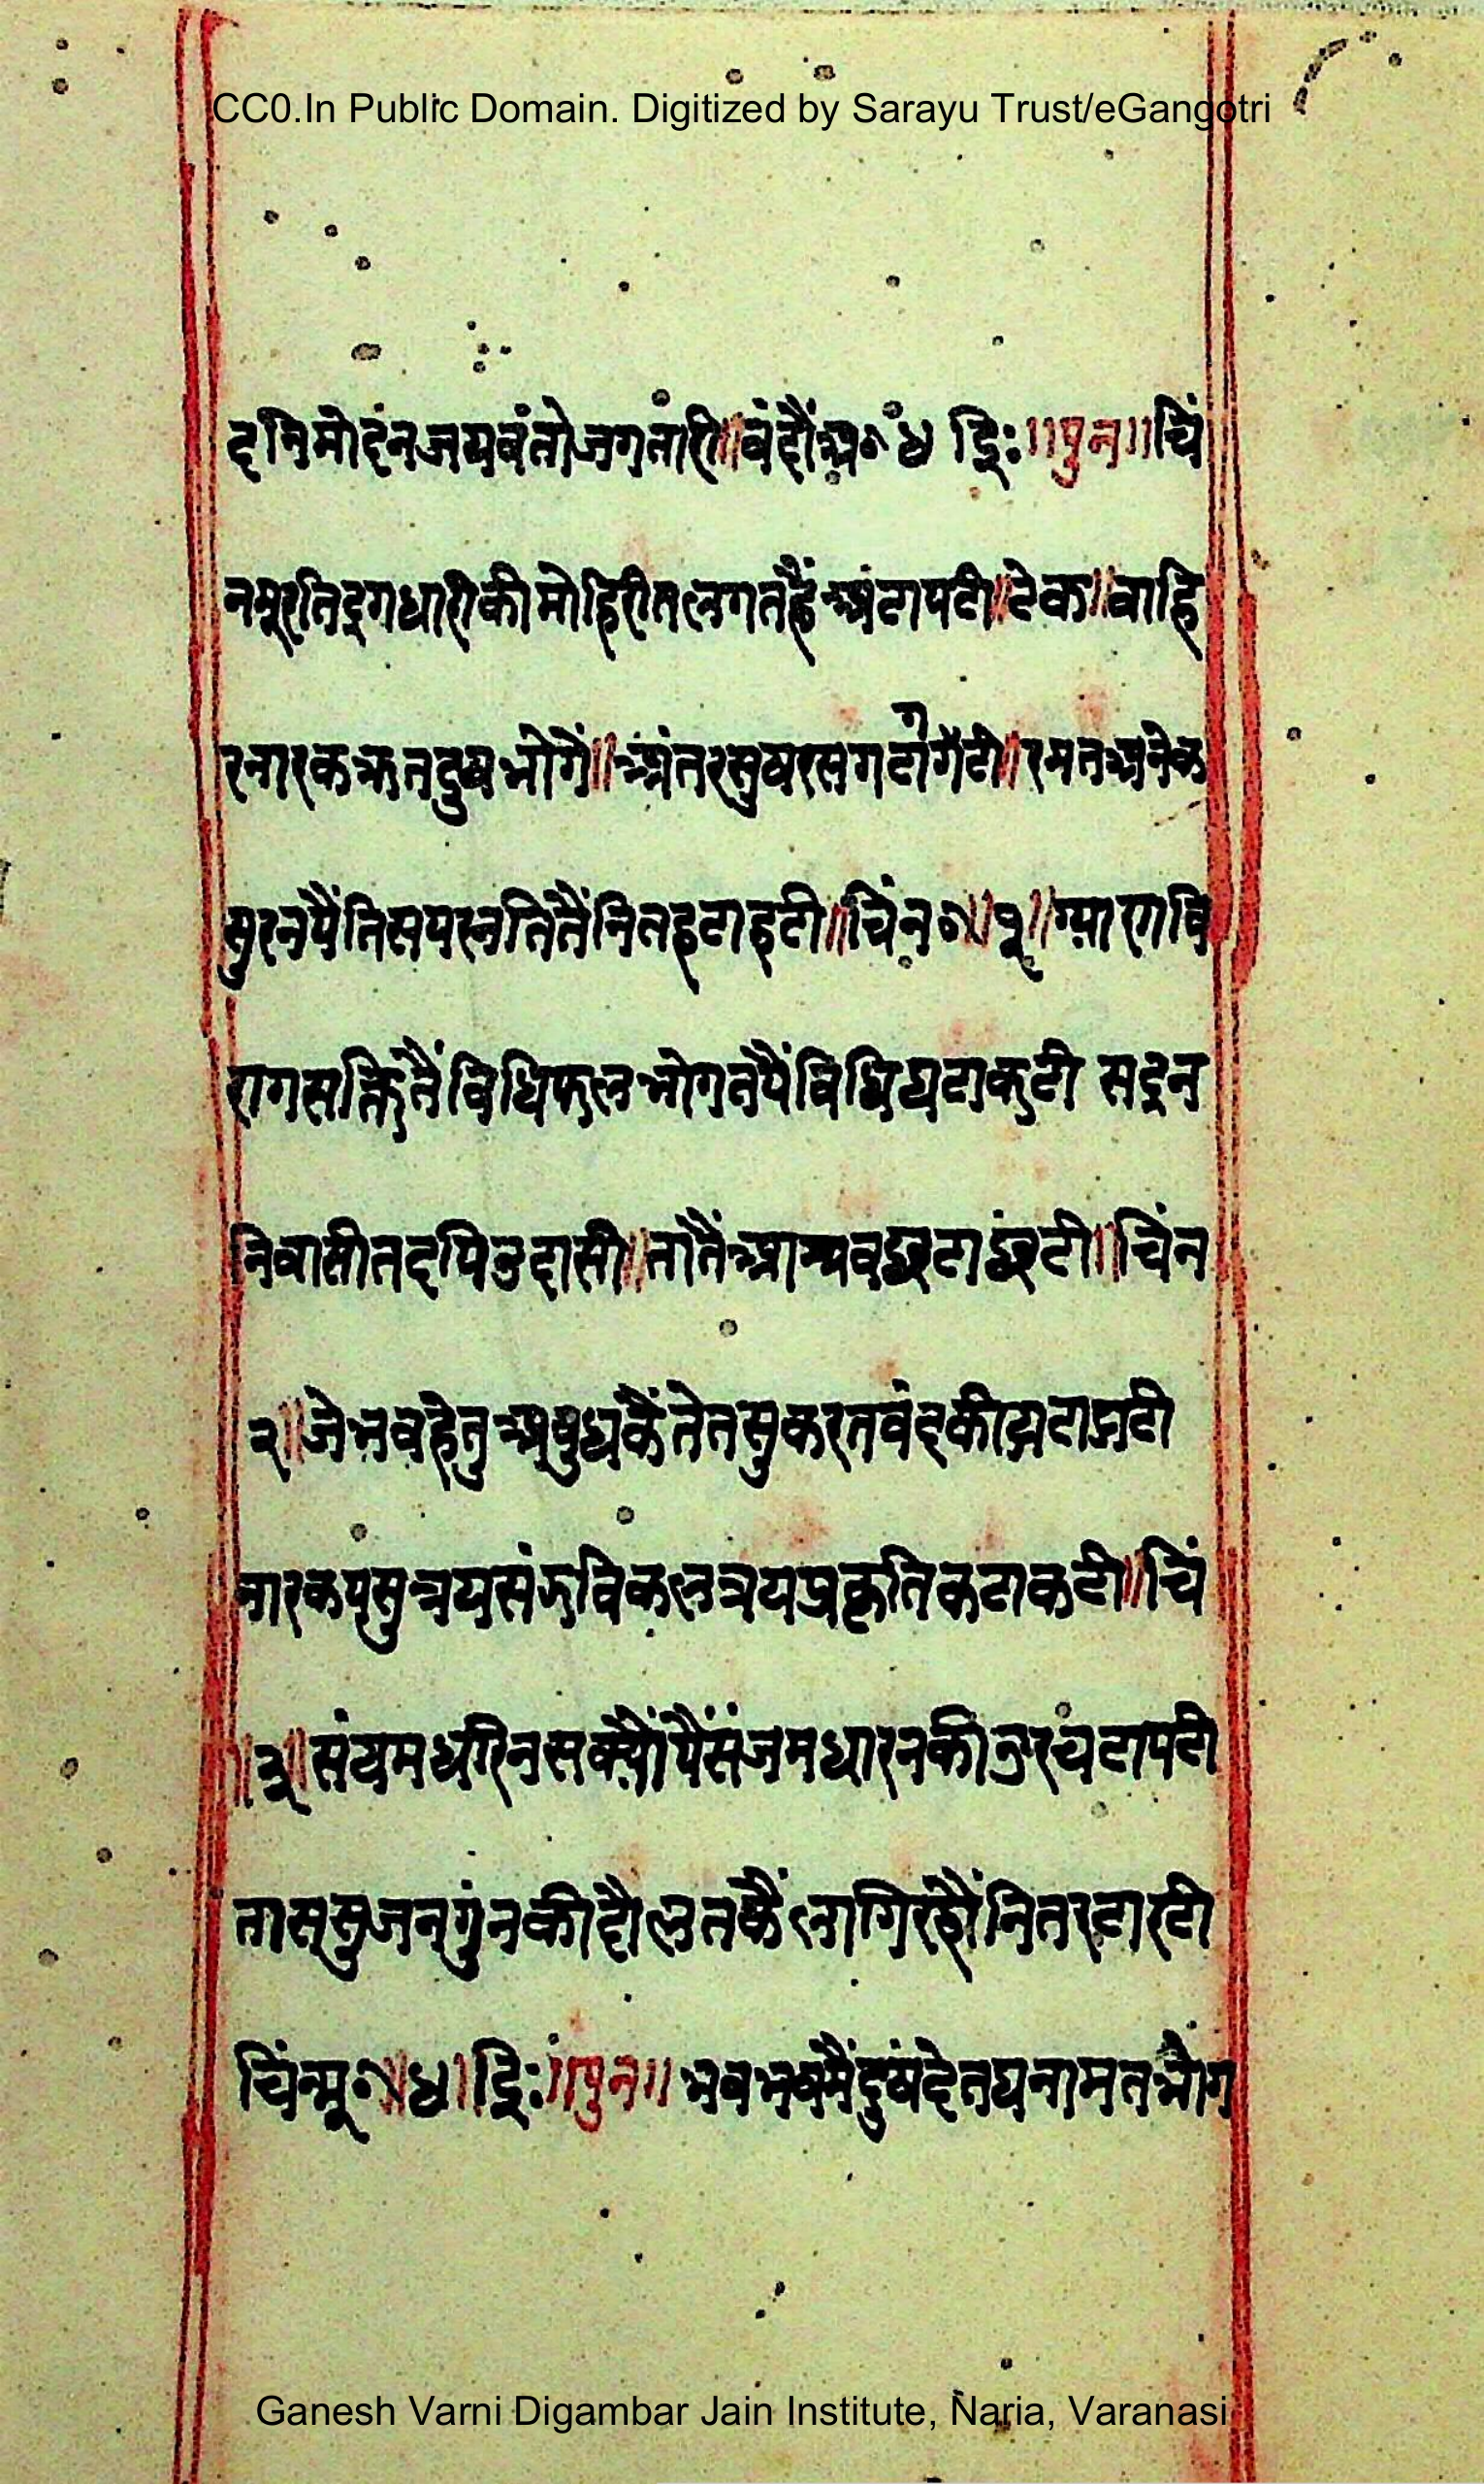 CC0.In Public Domain. Digitized by Sarayu Trust/eGangotri
दनिमोदंनजयवंतोजगतारी॥वंदौंअ॰ ४ द्धिः॥पुन॥चिं
नमूरतिद्रगधारीकीमोहिरीतलगतहैंअंटापटी॥टेक॥वाहि
रनारककृतदुषभोगैं॥अंतरसुषरसगटागटी॥रमतअनेक
सुरनपैंतिसपरनतितैंनितहटाहटी॥चिंन॰॥१॥ग्यारावि
रागसक्तितैंविधिफलभोगतपैंविधिघटाकटी सदन
निवासीतदपिउदासी॥तातैंआश्रवछटाछंटी॥चिंन
२॥जेभवहेतुअबुधकैंतेतसुकरतवंदकीझटाझटी
नारकपसुत्रयसंढविकलत्रयप्रकृतिकटाकटी॥चिं
॥३॥संयमधरिनसक्यौंपैंसंजमधारनकीउरचंटापटी
तास्सुजन्गुंनकीदौलतकैंलागिरहौंनितरटारटी
चिंन्मू॰॥४॥द्धिः॥पुन॥ भवभवमैंदुषंदेतघनामतभोंग
Ganesh Varni Digambar Jain Institute, Naria, Varanasi